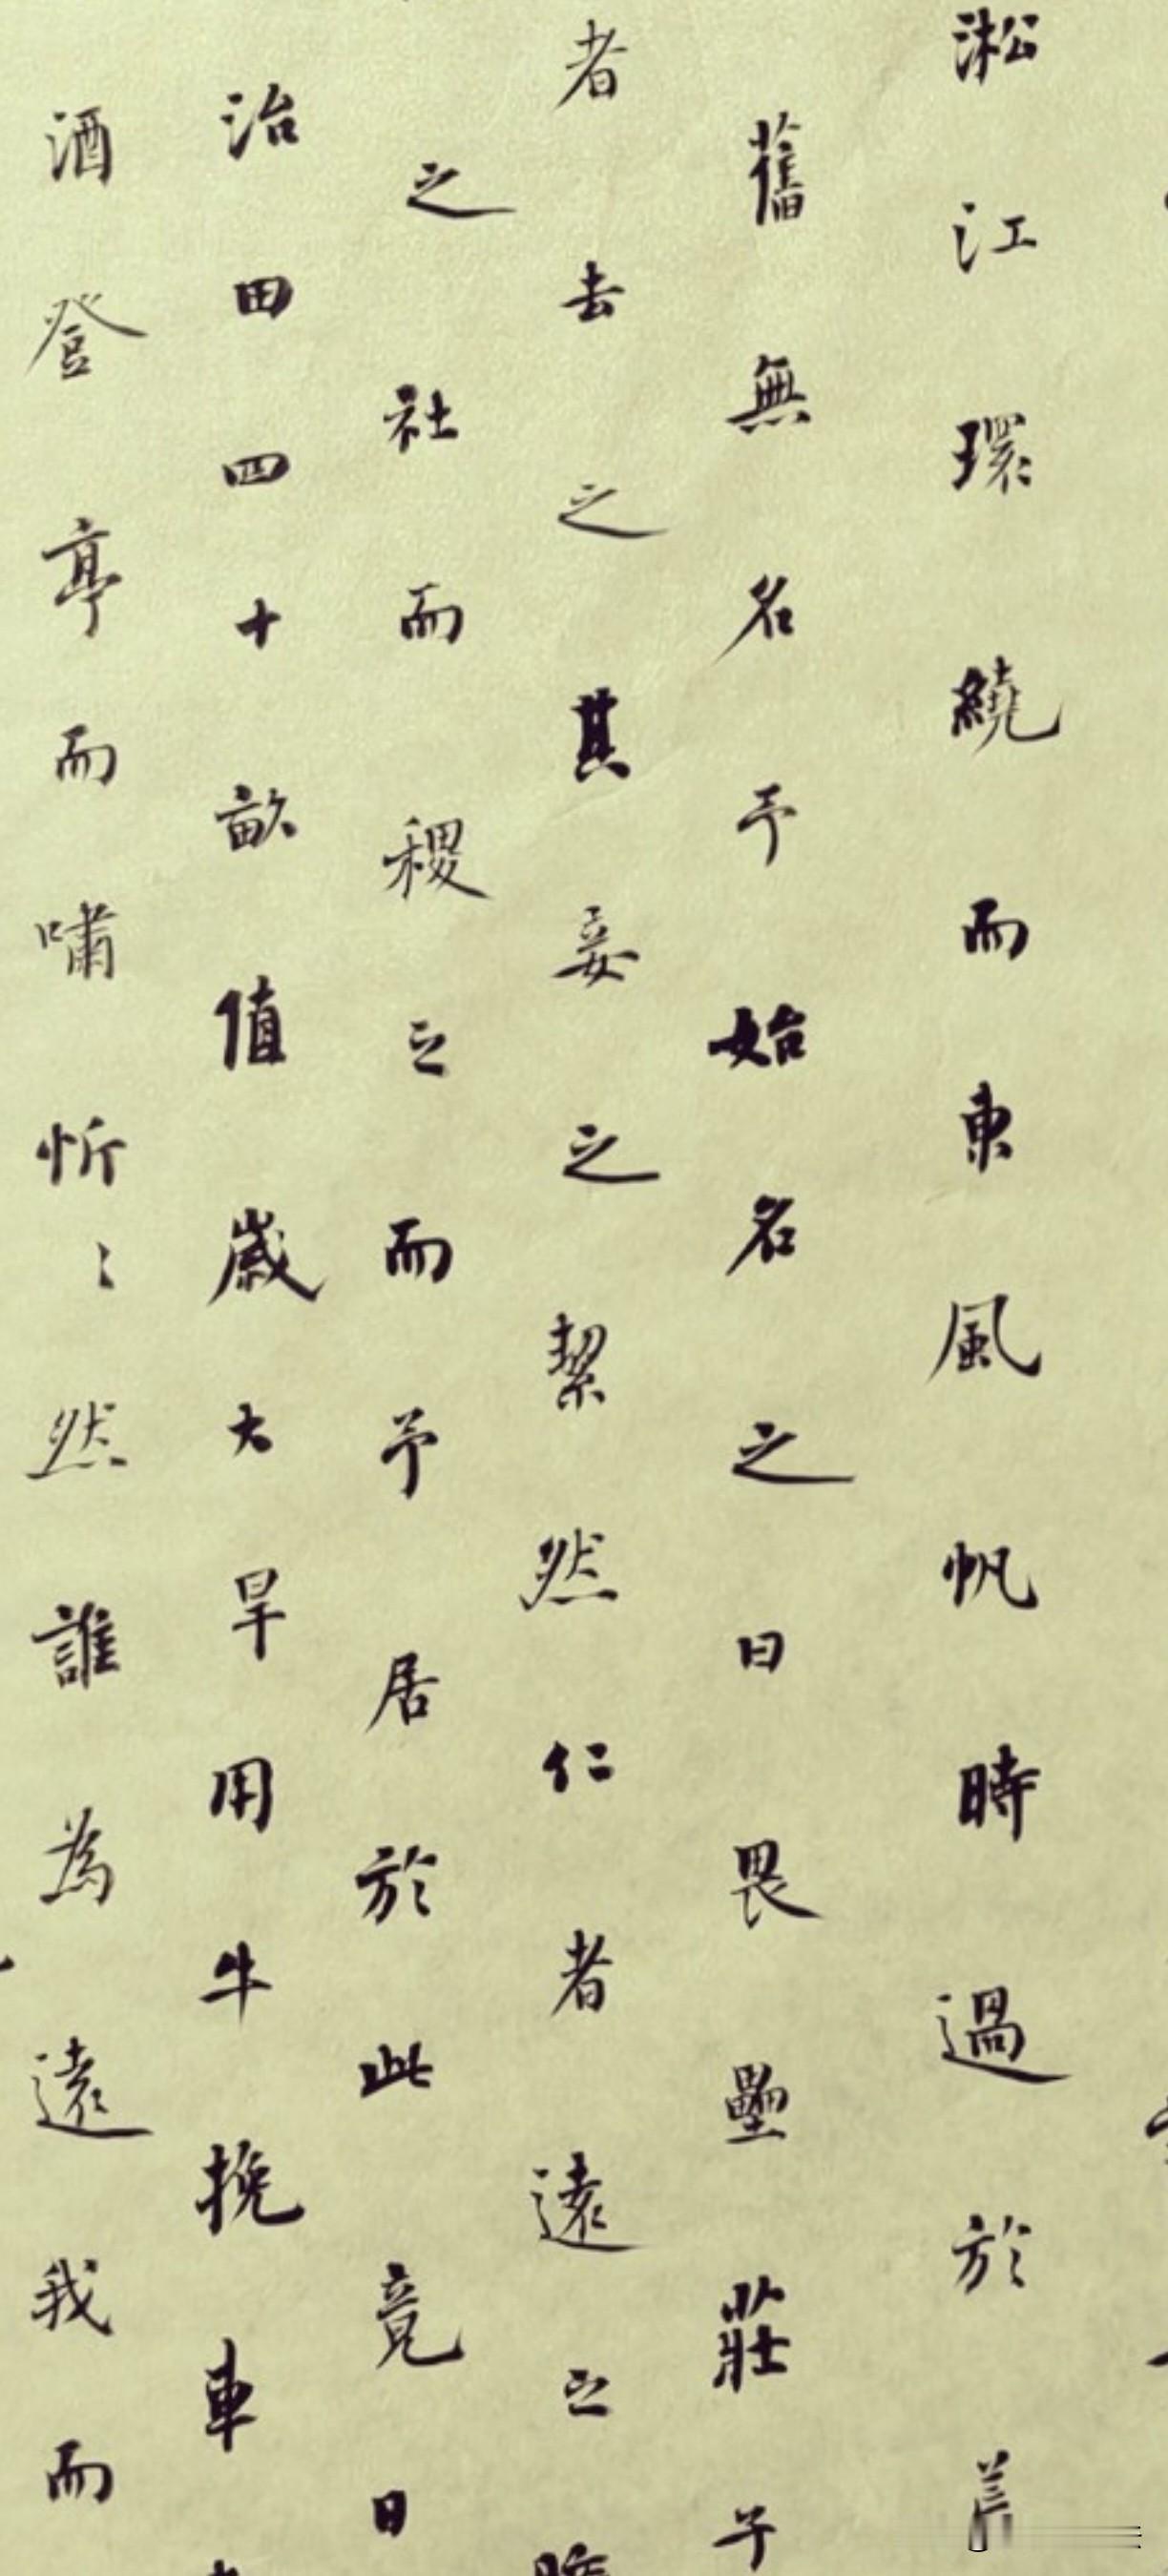 淞江環繞而東風帆時過於荒
舊無名予始名之曰畏壘莊子
者去之其妾之絜然仁者遠之
之社而稷之而予居於此竟日
治田四十畝值歲大旱用牛挽車
酒登亭而嘯忻〻然誰為遠我而